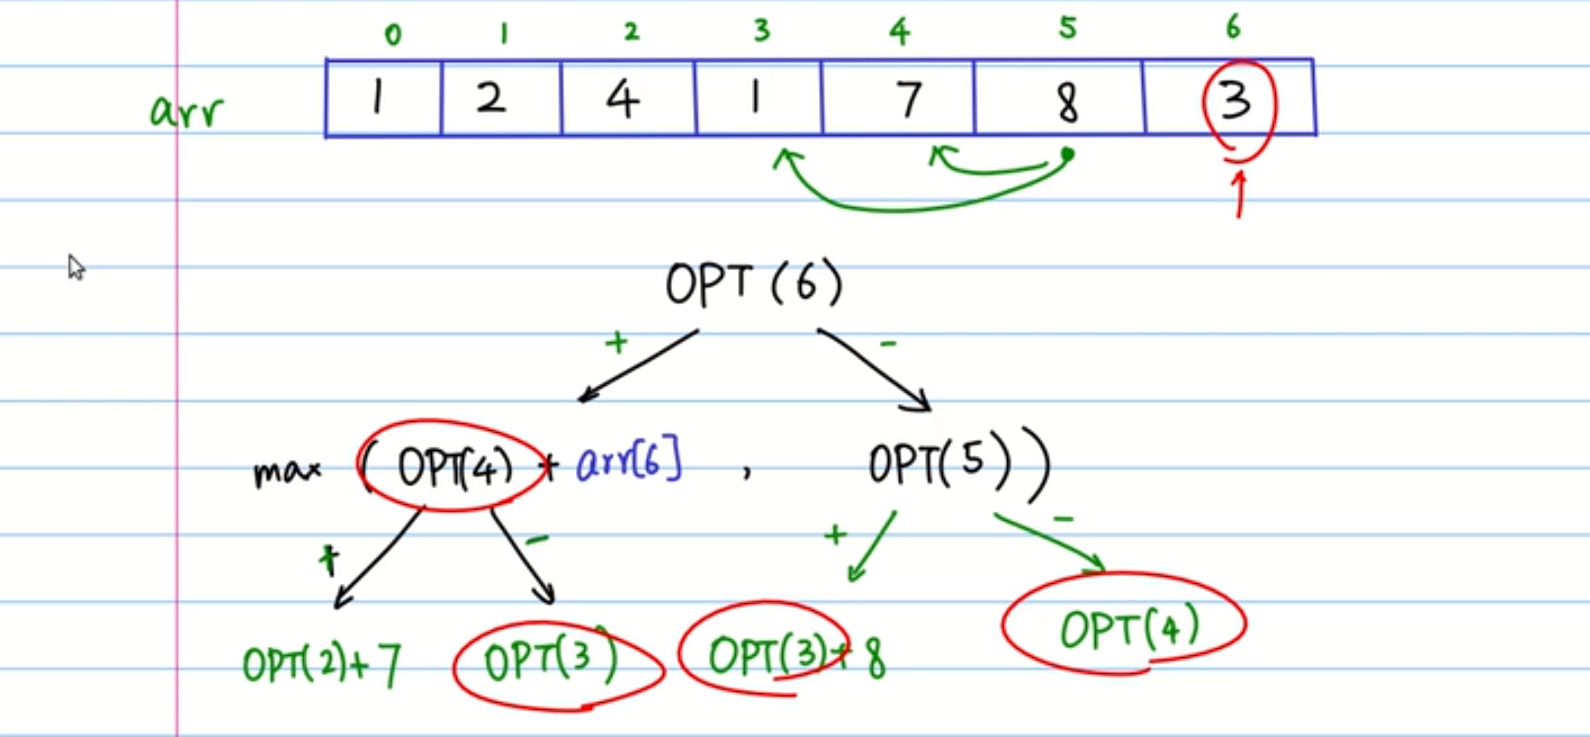 0 1 2 3 4 5 6
arr 1 2 4 1 7 8 3
OPT (6)
+ -
max ( OPT(4) + arr[6] , OPT(5) )
+ - + -
OPT(2)+7 OPT(3) OPT(3)+8 OPT(4)